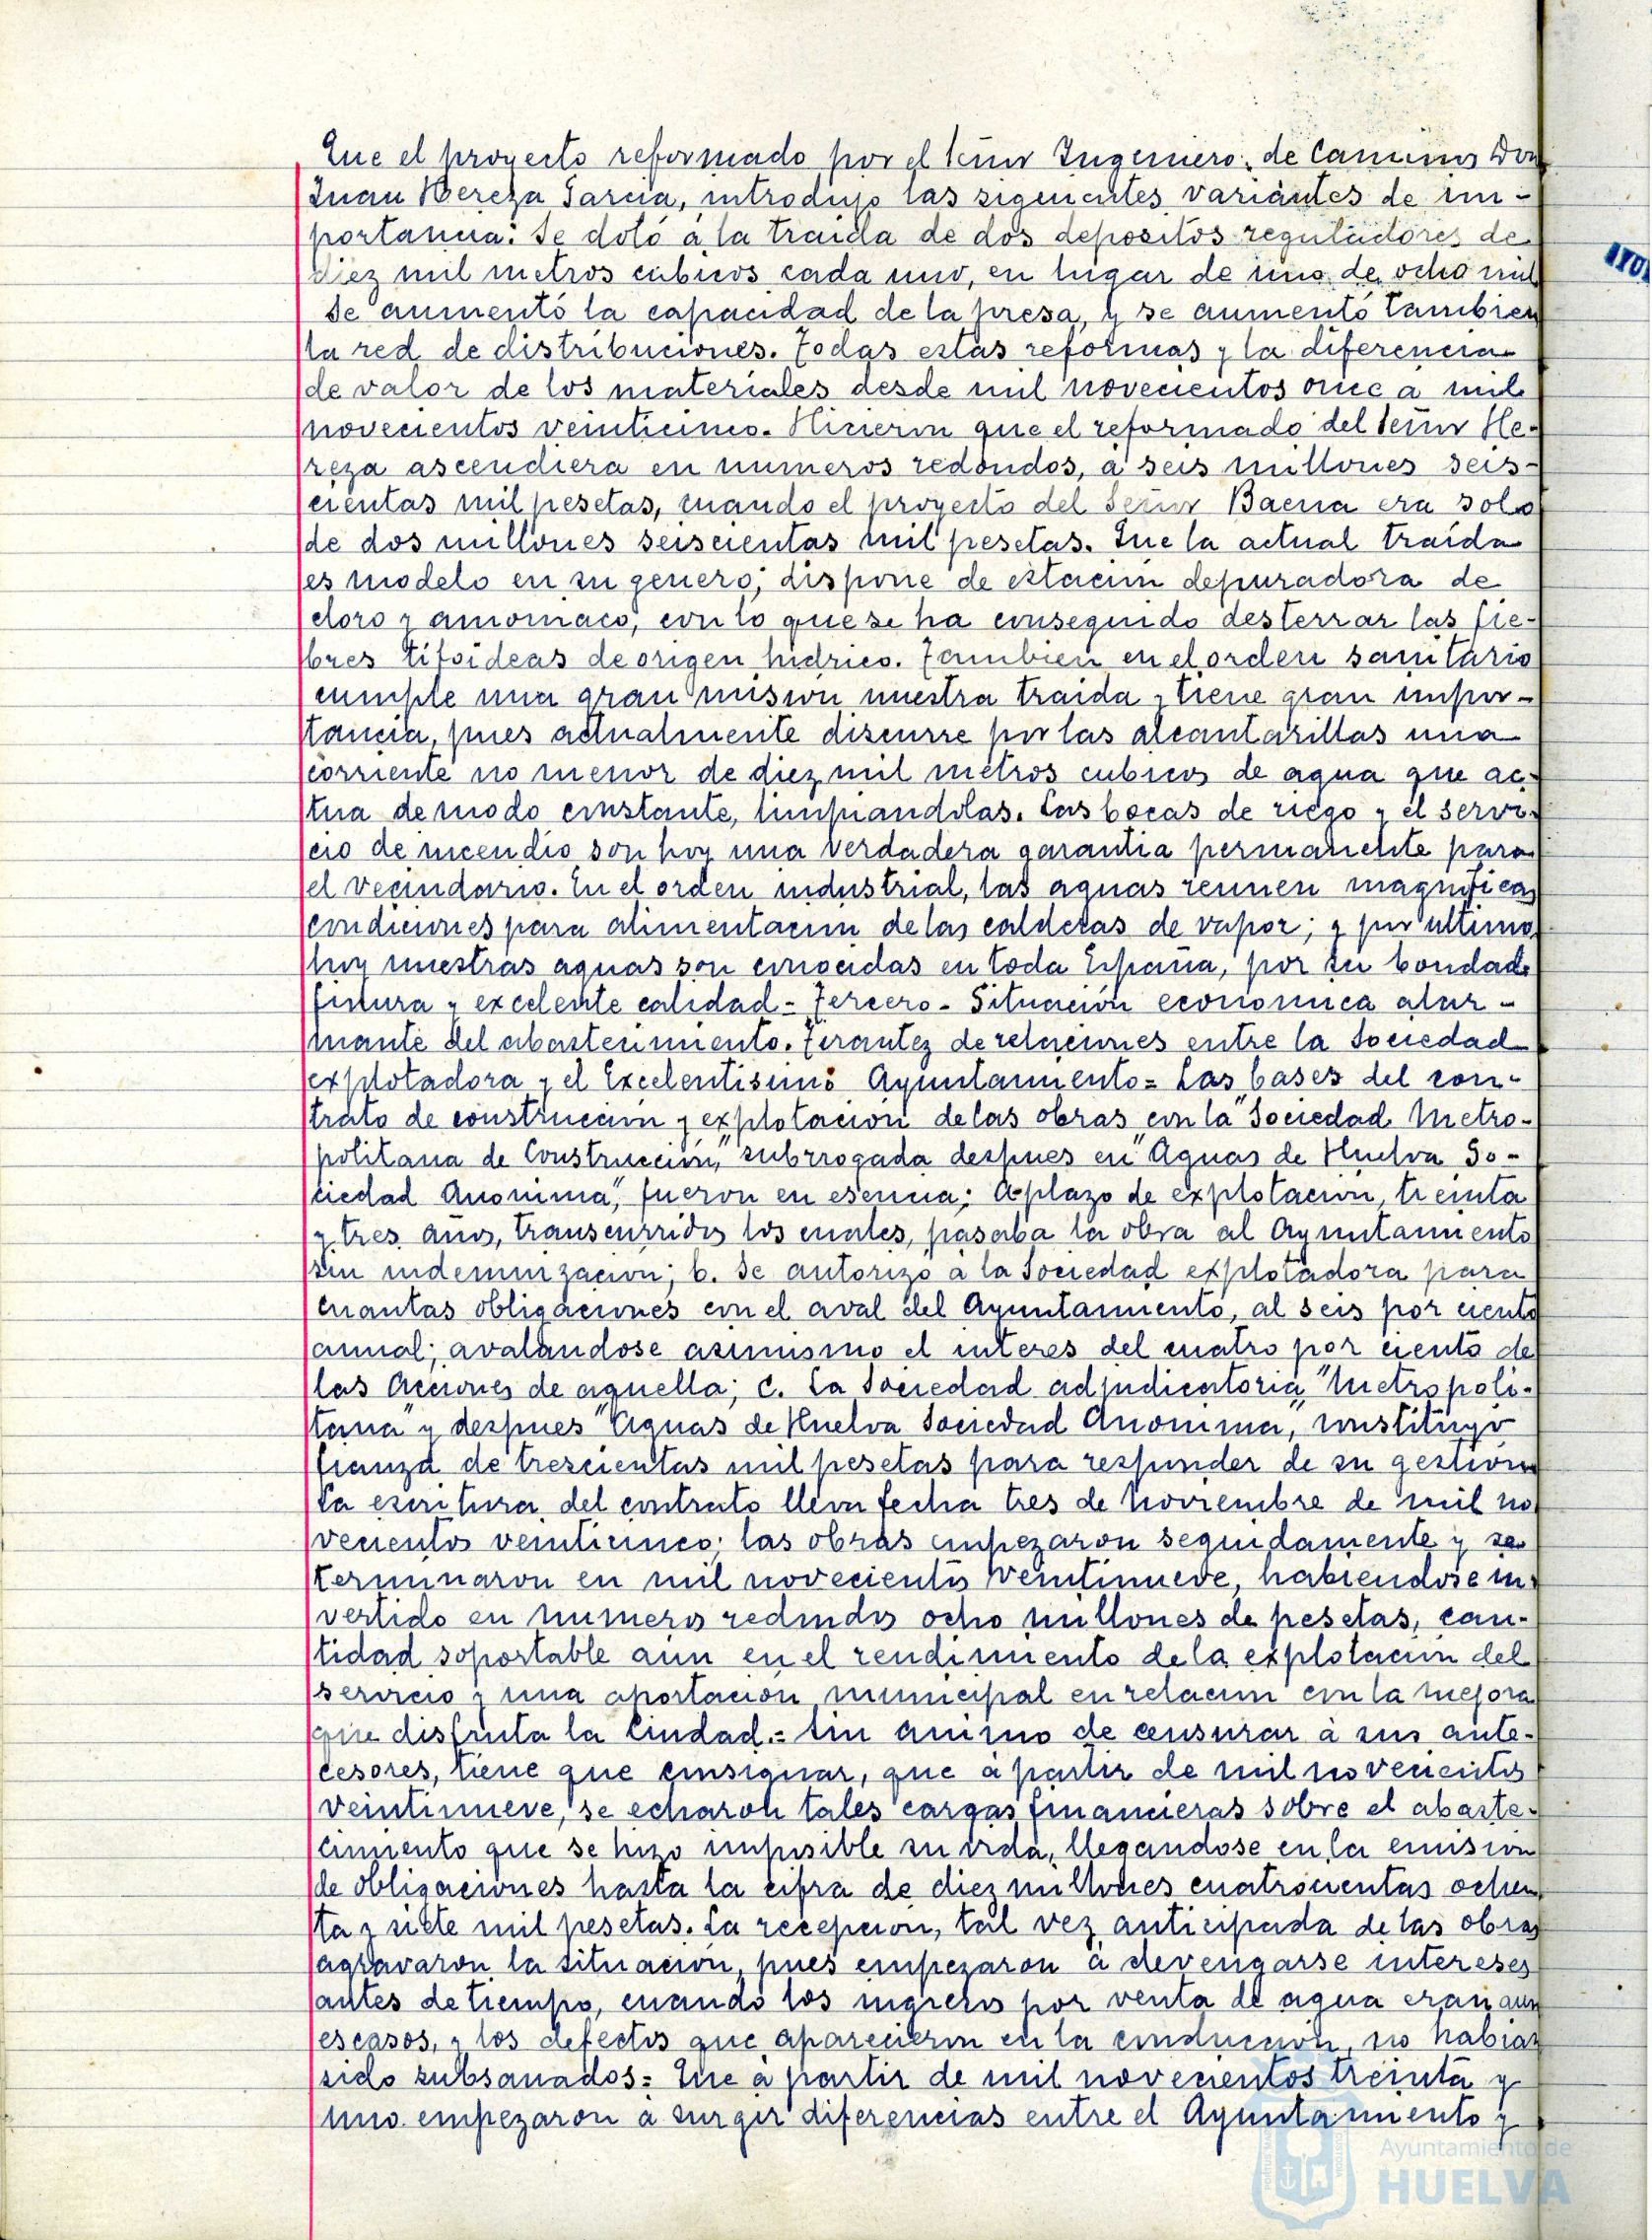 Que el proyecto reformado por el Señor Ingeniero, de Caminos Don
Juan Hereza Garcia, introdujo las siguientes variantes de im-
portancia: Se dotó á la traida de dos depositos reguladores de
diez mil metros cubicos cada uno, en lugar de uno de ocho mil
se aumentó la capacidad de la presa, y se aumentó tambien
la red de distribuciones. Todas estas reformas y la diferencia
de valor de los materiales desde mil novecientos once a mil
novecientos veinticinco. Hicieron que el reformado del Señor He-
reza ascendiera en numeros redondos, a seis millones seis-
cientas mil pesetas, cuando el proyecto del Señor Baena era solo
de dos millones seiscientas mil pesetas. Que la actual traida
es modelo en su genero, dispone de estacion depuradora de
cloro y amoniaco, con lo que se ha conseguido desterrar las fie-
bres tifoideas de origen hidrico. Tambien en el orden sanitario
cumple una gran mision nuestra traida y tiene gran impor-
tancia, pues actualmente discurre por las alcantarillas una
corriente no menor de diez mil metros cubicos de agua que ac-
tua de modo constante, limpiandolas. Las bocas de riego y el servi-
cio de incendio son hoy una verdadera garantia permanente para
el vecindario. En el orden industrial, las aguas reunen magnificas
condiciones para alimentacion de las calderas de vapor; y por ultimo
hoy nuestras aguas son conocidas en toda España, por su bondad
finura y excelente calidad = Tercero - Situación economica alar-
mante del abastecimiento. Tirantez de relaciones entre la Sociedad
explotadora y el Excelentisimo Ayuntamiento = Las bases del con-
trato de construccion y explotacion de las obras con la "Sociedad Metro-
politana de Construccion," subrrogada despues en "Aguas de Huelva So-
ciedad Anonima", fueron en esencia: a plazo de explotacion, treinta
y tres años, transcurridos los cuales, pasaba la obra al Ayuntamiento
sin indemnizacion; b. Se autorizó a la Sociedad explotadora para
cuantas obligaciones con el aval del Ayuntamiento, al seis por ciento
anual; avalandose asimismo el interes del cuatro por ciento de
las Acciones de aquella; c. La Sociedad adjudicatoria "Metropoli-
tana" y despues "Aguas de Huelva Sociedad Anonima", constituyó
fianza de trescientas mil pesetas para responder de su gestion
La escritura del contrato lleva fecha tres de Noviembre de mil no
vecientos veinticinco; las obras empezaron seguidamente y se
terminaron en mil novecientos veintinueve, habiendose in-
vertido en numeros redondos ocho millones de pesetas, can-
tidad soportable aun en el rendimiento de la explotacion del
servicio y una aportacion municipal en relacion con la mejora
que disfruta la Ciudad.= Sin animo de censurar á sus ante-
cesores, tiene que consignar, que a partir de mil novecientos
veintinueve, se echaron tales cargas financieras sobre el abaste-
cimiento que se hizo imposible su vida, llegandose en la emision
de obligaciones hasta la cifra de diez millones cuatrocientas ochen
ta y siete mil pesetas. La recepcion, tal vez anticipada de las obras
agravaron la situacion, pues empezaron á devengarse intereses
antes de tiempo, cuando los ingresos por venta de agua eran aun
escasos, y los defectos que aparecieron en la conduccion, no habian
sido subsanados = Que a partir de mil novecientos treinta y
uno empezaron a surgir diferencias entre el Ayuntamiento y
Ayuntamiento de
HUELVA